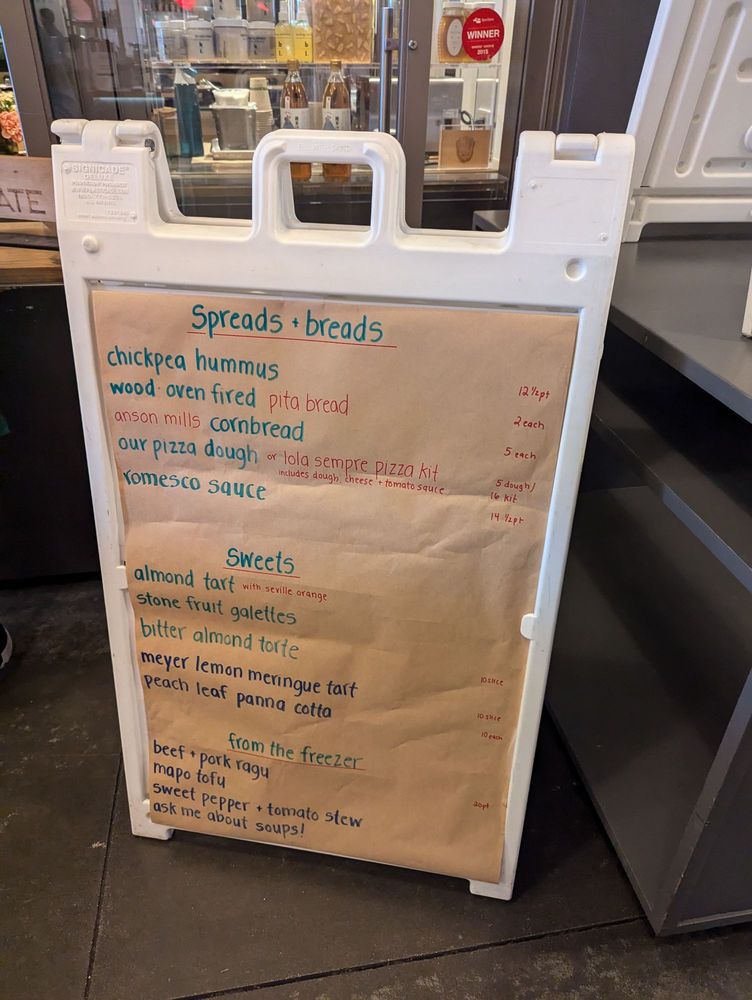 WINNER
2015
SIGNICADE
DELUXE
ATE
Spreads + breads
chickpea hummus 12 ½pt
wood oven fired pita bread 2 each
anson mills cornbread 5 each
our pizza dough or lola sempre pizza kit 5 dough/
includes dough, cheese + tomato sauce 16 kit
romesco sauce 14 ½pt
Sweets
almond tart with seville orange
stone fruit galettes
bitter almond torte
meyer lemon meringue tart 10 slice
peach leaf panna cotta 10 slice
10 each
from the freezer
beef + pork ragu
mapo tofu 20pt
sweet pepper + tomato stew
ask me about soups!